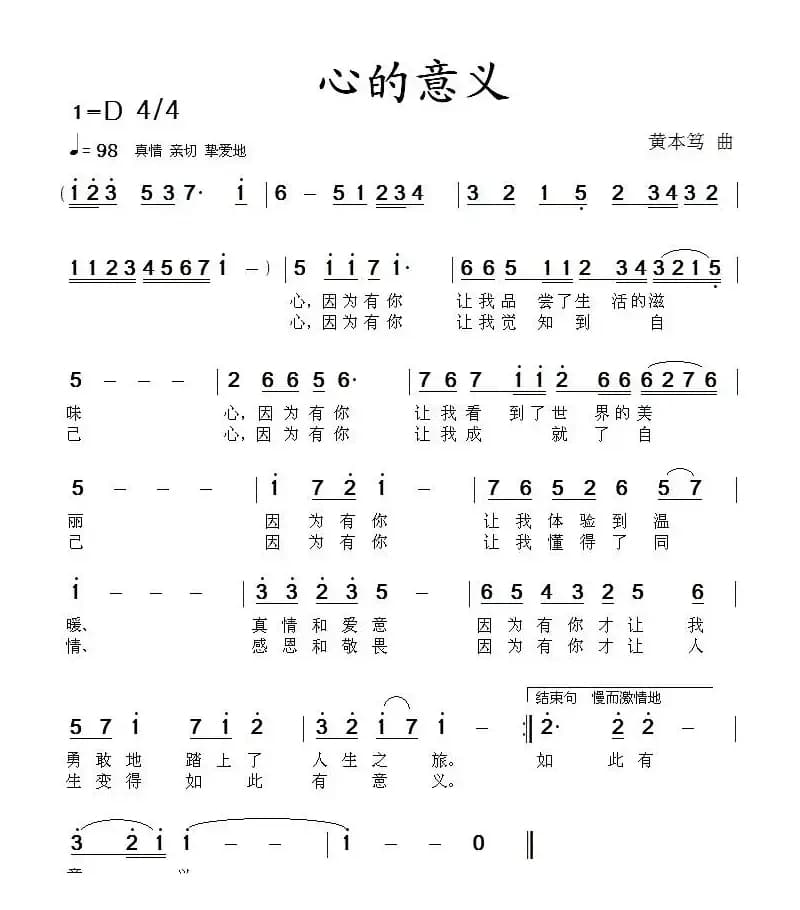 心的意义
1=D 4/4
黄本笃 曲
♩= 98 真情 亲切 挚爱地
( 1 2 3 5 3 7· 1 | 6 – 5 1 2 3 4 | 3 2 1 5 2 3 4 3 2 |
1 1 2 3 4 5 6 7 1 – ) | 5 1 1 7 1· | 6 6 5 1 1 2 3 4 3 2 1 5 |
心，因为有你 让我品 尝了生 活的滋
心，因为有你 让我觉 知到 自
5 – – – | 2 6 6 5 6· | 7 6 7 1 1 2 6 6 6 2 7 6 |
味 心，因为有你 让我看 到了世 界的美
己 心，因为有你 让我成 就了自
5 – – – | 1 7 2 1 – | 7 6 5 2 6 5 7 |
丽 因为有你 让我体验到温
己 因为有你 让我懂得了同
1 – – – | 3 3 2 3 5 – | 6 5 4 3 2 5 6 |
暖、 真情和爱意 因为有你才让我
情、 感恩和敬畏 因为有你才让人
结束句 慢而激情地
5 7 1 7 1 2 | 3 2 1 7 1 – :| 2· 2 2 – |
勇敢地 踏上了 人生之旅。 如此有
生变得 如此 有意义。
3 2 1 1 – – | 1 – – 0 ||